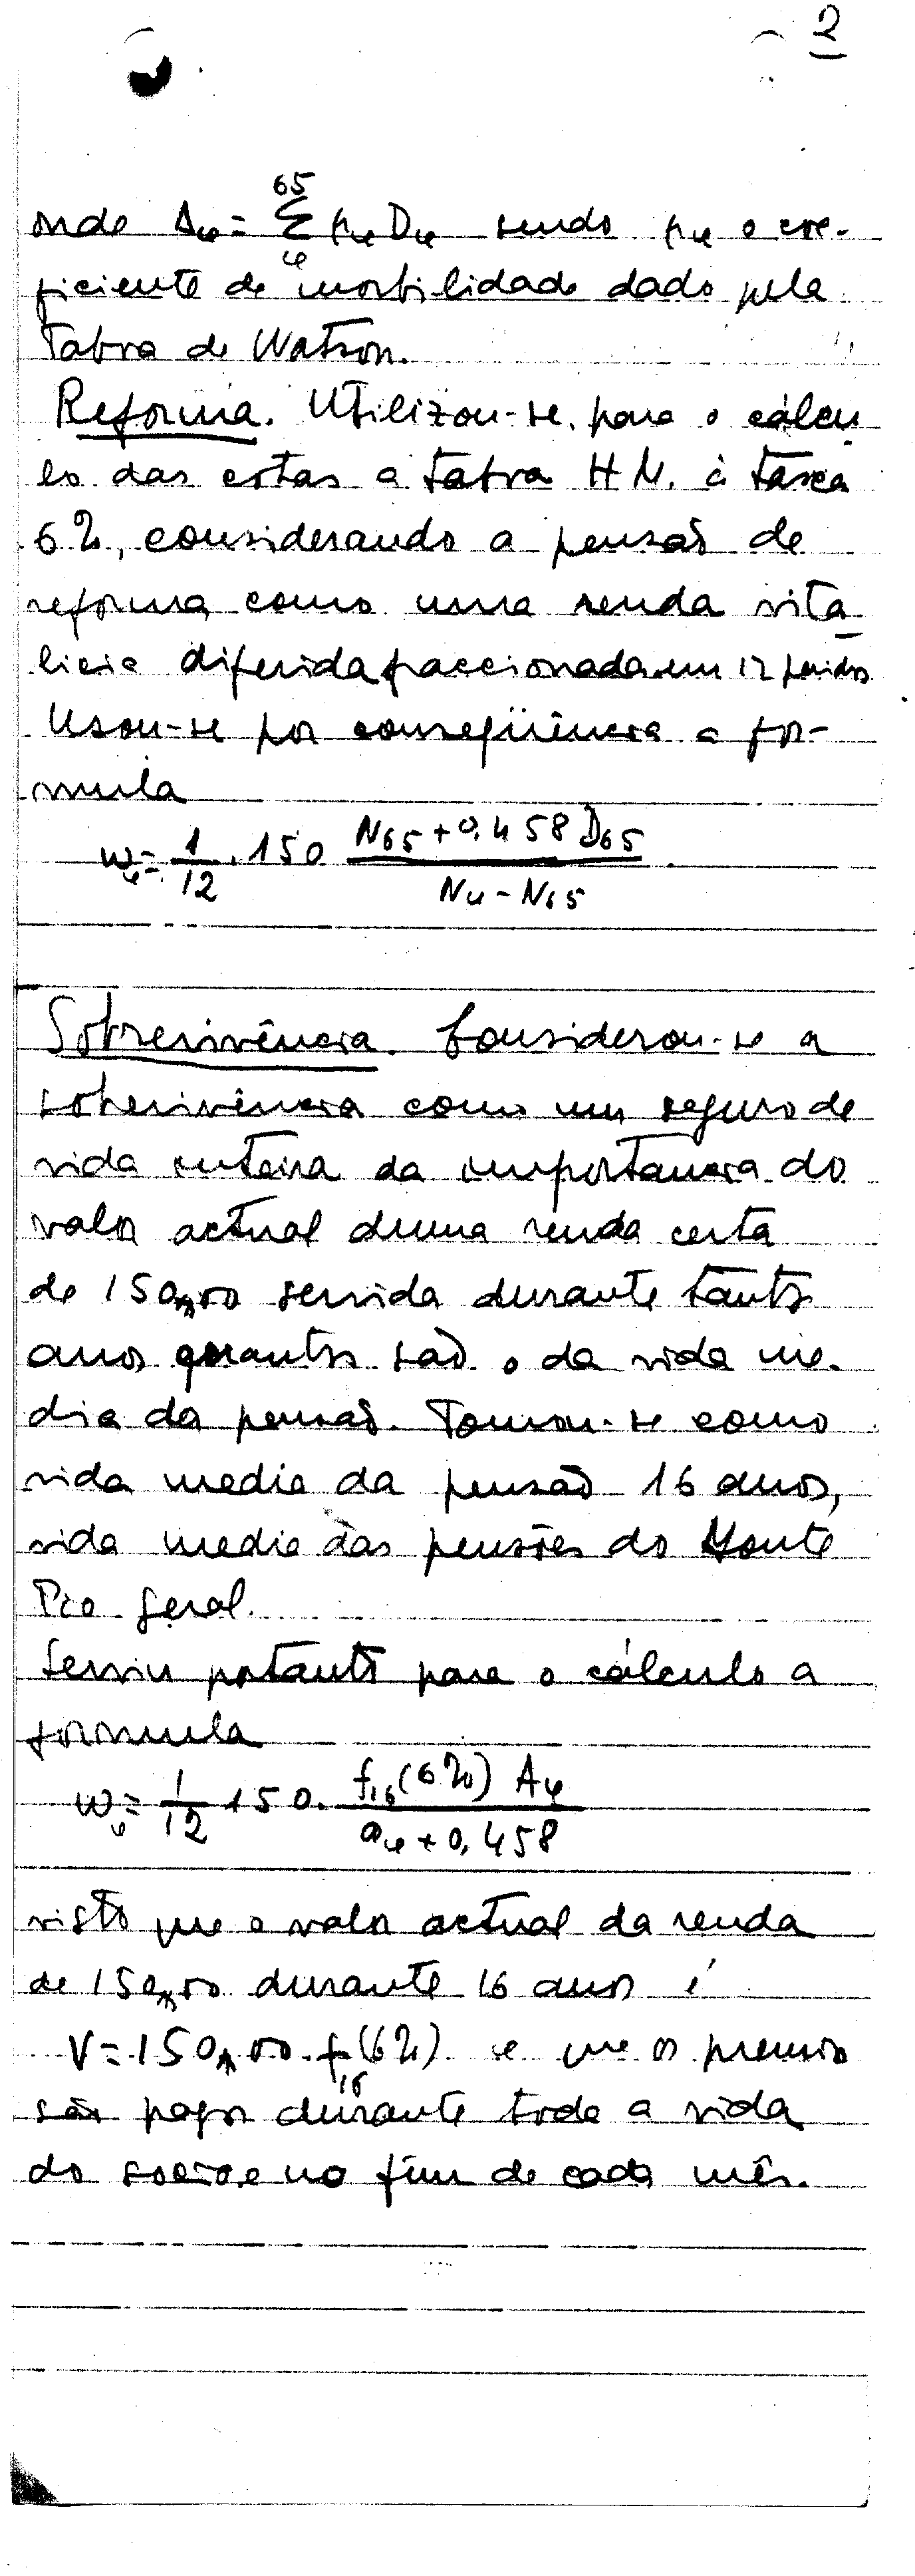 2
onde Δφ = Σ⁶⁵φ μφ Dφ sendo μφ o coe-
ficiente de morbilidade dado pela
Tabua de Watson.
Reforma. Utilizou-se para o cálcu
lo das cotas a tabua HM. à taxa
6%, considerando a pensão de
reforma como uma renda vita
licia diferida fraccionada em 12 períodos
Usou-se por conseqüência a for-
mula
wφ = 1/12 . 150 (N65 + 0,458 D65)/(Nφ - N65) .
Sobrevivência. Considerou-se a
sobrevivência como um seguro de
vida inteira da importancia do
valor actual duma renda certa
de 150$00 servida durante tantos
anos quantos são o da vida me-
dia da pensão. Tomou-se como
vida media da pensão 16 anos,
vida media das pensões do Monte
Pio Geral.
Serviu portanto para o cálculo a
formula
wφ = 1/12 150. (f16(6%) Aφ)/(aφ + 0,458)
visto que o valor actual da renda
de 150$00 durante 16 anos é
V = 150$00. f16(6%) e que os premios
são pagos durante toda a vida
do socio e no fim de cada mês.